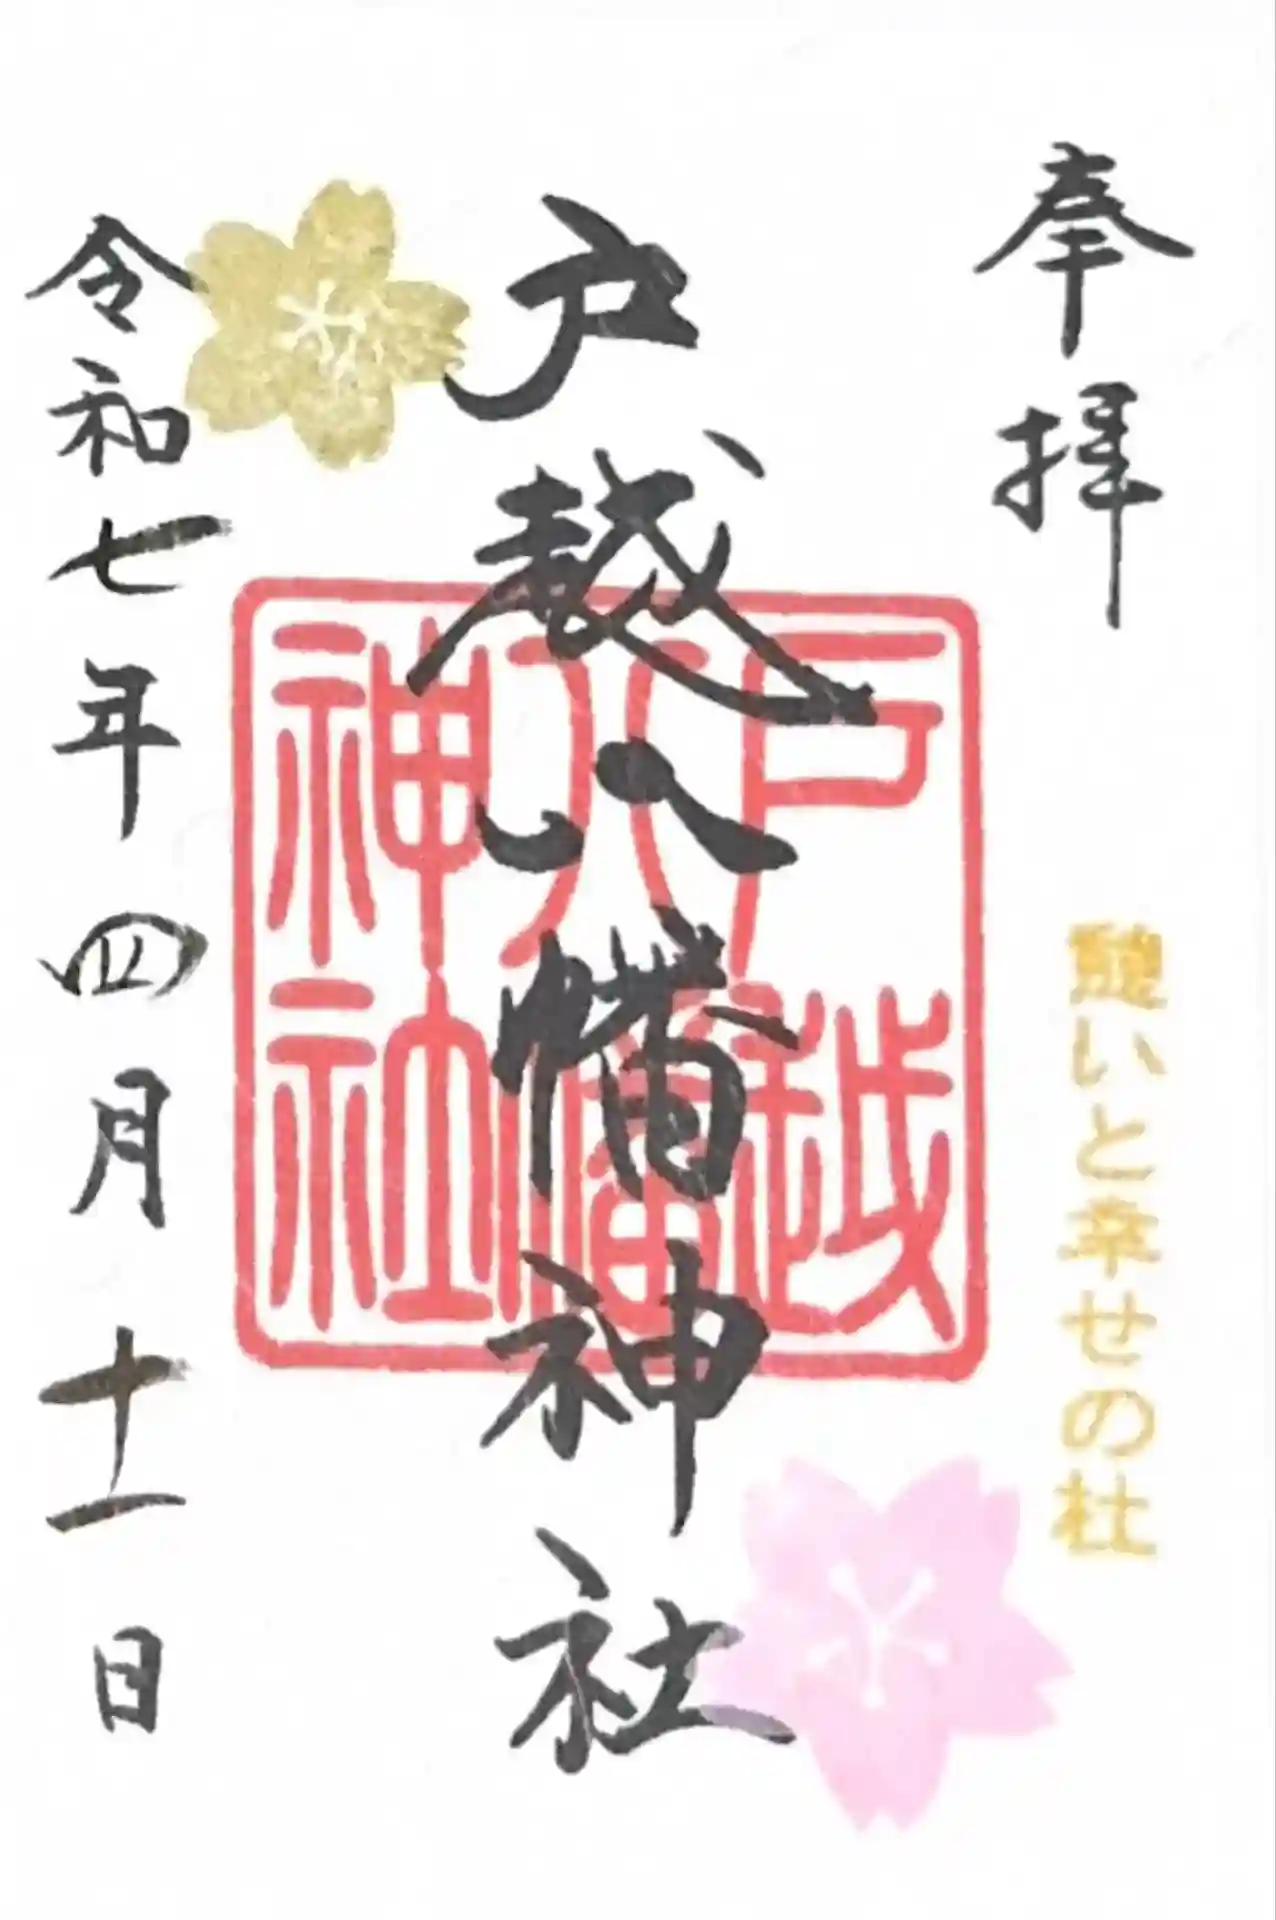 奉拝
憩いと幸せの杜
戸越八幡神社
戸越
八幡
神社
令和七年四月十一日